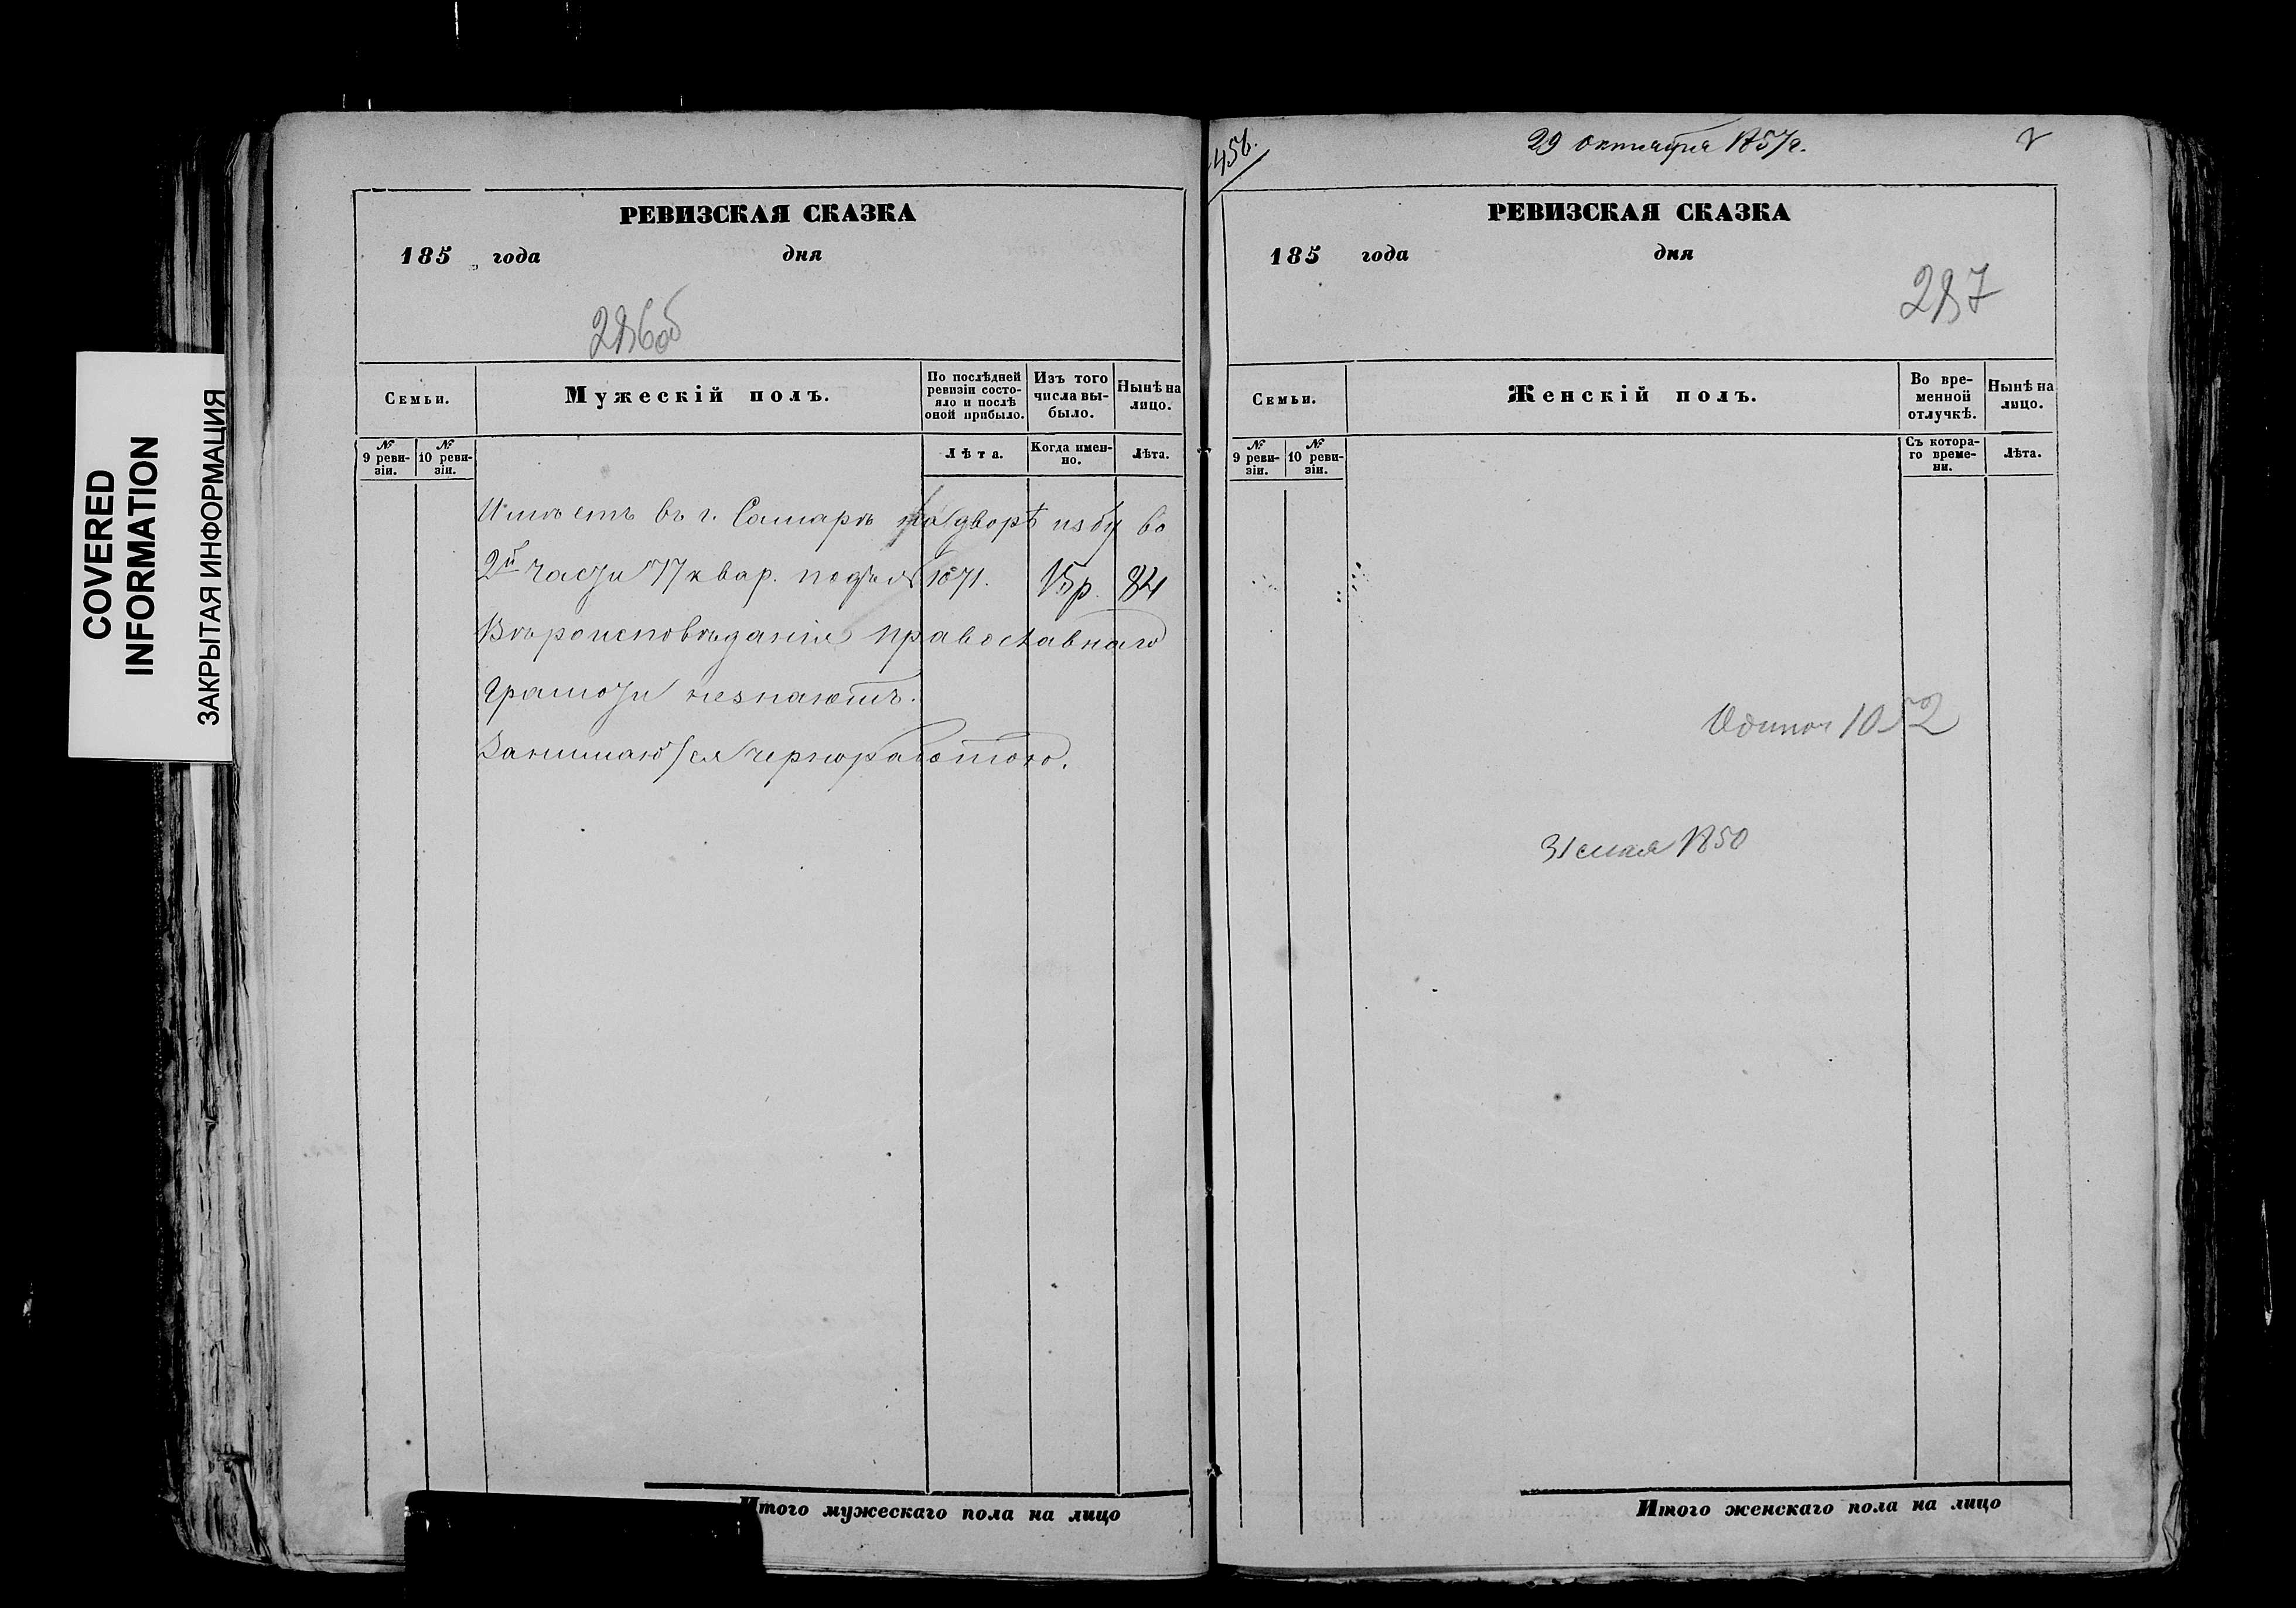 COVERED
INFORMATION
ЗАКРЫТАЯ ИНФОРМАЦИЯ
РЕВИЗСКАЯ СКАЗКА
185 года дня
286об
Семьи.
Мужескій полъ.
По послѣдней
ревизіи состо-
яло и послѣ
оной прибыло.
Изъ того
числа вы-
было.
Нынѣ на
лицо.
№
9 реви-
зіи.
№
10 реви-
зіи.
Лѣта.
Когда имен-
но.
Лѣта.
Имѣетъ въ г. Самарѣ на дворѣ избу во
2й части 77 квар. под № 1071. 15 р. 84
Вѣроисповѣданія православнаго
Грамоти незнаютъ.
Занимаются черноработою.
Итого мужескаго пола на лицо
456.
29 октября 1857 г.
РЕВИЗСКАЯ СКАЗКА
185 года дня
287
Семьи.
Женскій полъ.
Во вре-
менной
отлучкѣ.
Нынѣ на
лицо.
№
9 реви-
зіи.
№
10 реви-
зіи.
Съ котора-
го време-
ни.
Лѣта.
1052
31 мая 1850
Итого женскаго пола на лицо